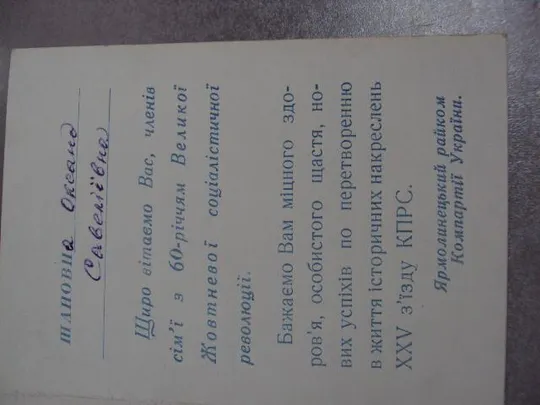 ШАНОВНа Оксано
Савеліївна
Щиро вітаємо Вас, членів
сім'ї з 60-річчям Великої
Жовтневої соціалістичної
революції.
Бажаємо Вам міцного здо-
ров'я, особистого щастя, но-
вих успіхів по перетворенню
в життя історичних накреслень
XXV з'їзду КПРС.
Ярмолинецький райком
Компартії України.